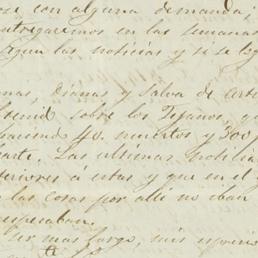 con alguna demanda;
entregaremos en las semanas
las noticias y si se
Dianas y Salva de arti
sobre los Tejanos, qu
haciendo 40. muertos y 300 p
parte. Las ultimas noticia
teriores a estas y que en el
las cosas por alli no iban
esperaban.
ser mas largo, mis